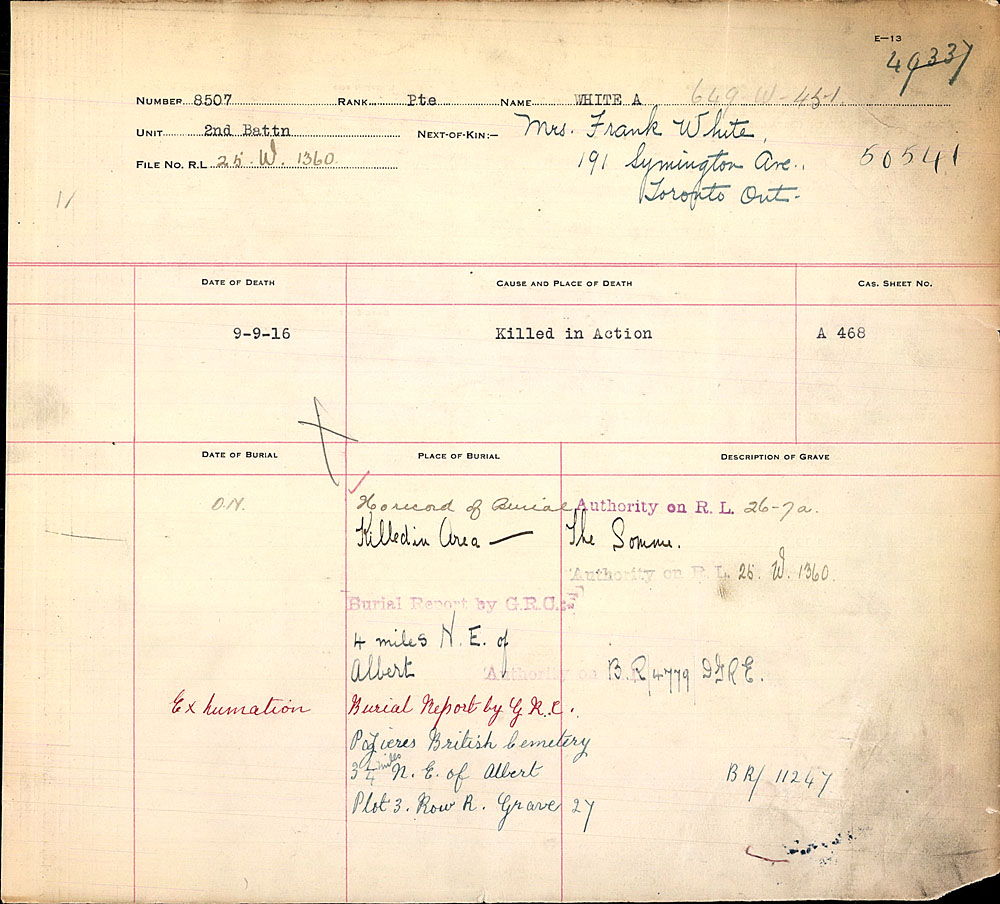 E—13
49337
NUMBER 8507 RANK Pte NAME WHITE A 649-W-45-1
UNIT 2nd Battn NEXT-OF-KIN:— Mrs. Frank White,
FILE NO. R.L 25. W. 1360. 191 Symington Ave. 50541
Toronto Ont.
DATE OF DEATH CAUSE AND PLACE OF DEATH CAS. SHEET NO.
9-9-16 Killed in Action A 468
DATE OF BURIAL PLACE OF BURIAL DESCRIPTION OF GRAVE
No record of Burial Authority on R. L. 26-7a.
Killed in Area — The Somme.
Authority on R. L. 25. W. 1360.
Burial Report by G.R.C.:-
4 miles N. E. of
Albert Authority on B.R/4779 DGRE.
Exhumation Burial Report by G.R.C.
Pozieres British Cemetery
3¼ miles N. E. of Albert BR/ 11247
Plot 3. Row R. Grave 27